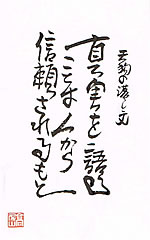 天狗の落し文
真実を語る
ことは人から
信頼されるもと